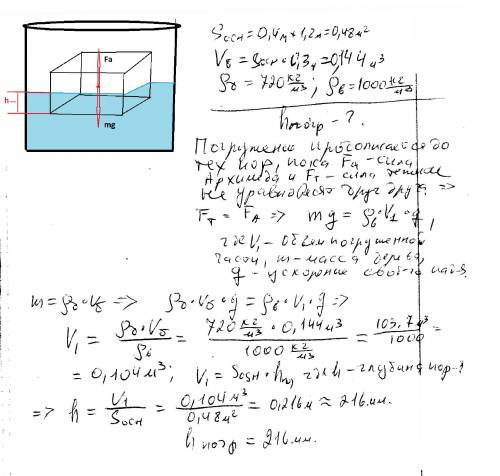 Fa
h
mg
Sосн = 0,4м * 1,2м = 0,48м²
Vб = Sосн · 0,3м = 0,144 м³
ρб = 720 кг/м³; ρв = 1000 кг/м³
hпогр - ?
Погружение происходит до
тех пор, пока Fa - сила
Архимеда и Fт - сила тяжести
не уравновесят друг друга. =>
Fт = FA => mg = ρв · V1 · g,
где V1 - объём погруженной
части, m - масса
g - ускорение
m = ρб · Vб => ρб · Vб · g = ρв · V1 · g =>
V1 = ρб · Vб / ρв = 720 кг/м³ · 0,144 м³ / 1000 кг/м³ = 103,7 м³ / 1000 =
= 0,104 м³; V1 = Sосн · h, где h - глубина
=> h = V1 / Sосн = 0,104 м³ / 0,48 м² = 0,216 м ≈ 216 мм.
hпогр = 216 мм.